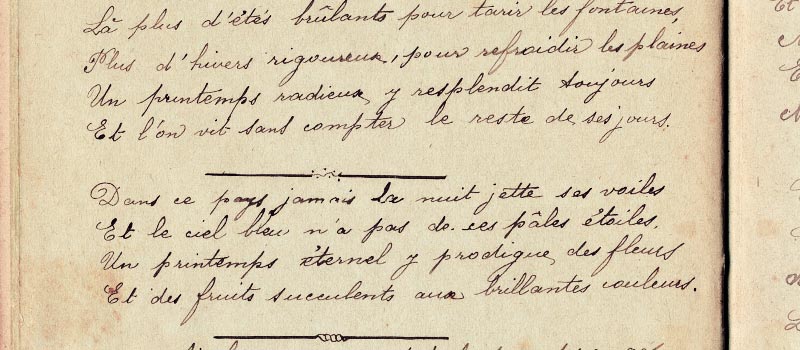 Là plus d'étés brûlants pour tarir les fontaines,
Plus d'hivers rigoureux, pour refroidir les plaines
Un printemps radieux y resplendit toujours
Et l'on vit sans compter le reste de ses jours.
Dans ce pays jamais la nuit jette ses voiles
Et le ciel bleu n'a pas de ces pâles étoiles.
Un printemps éternel y prodigue des fleurs
Et des fruits succulents aux brillantes couleurs.